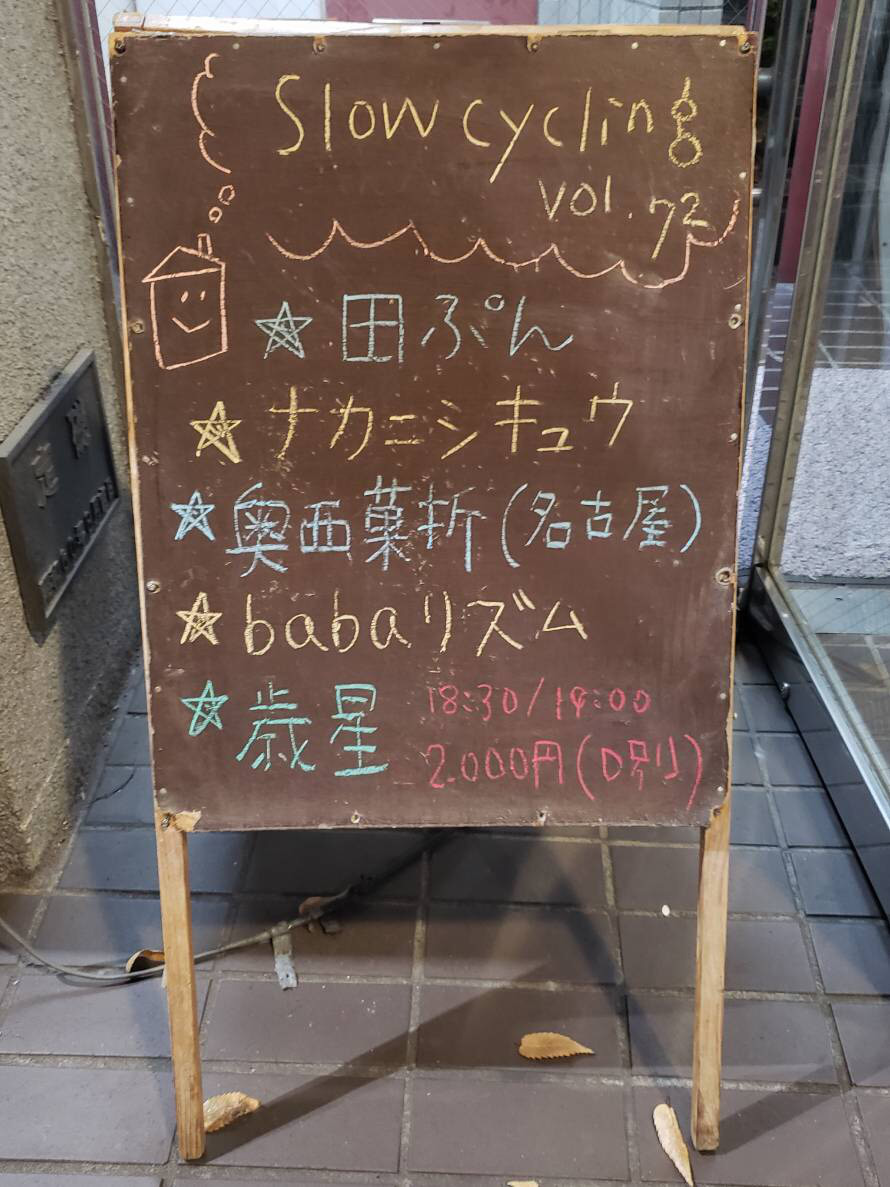 Slow cycling
vol. 72
☆ 田ぷん
☆ ナカニシキュウ
☆ 奥西菓折(名古屋)
☆ babaリズム
☆ 歳星
18:30/19:00
2.000円(D別)